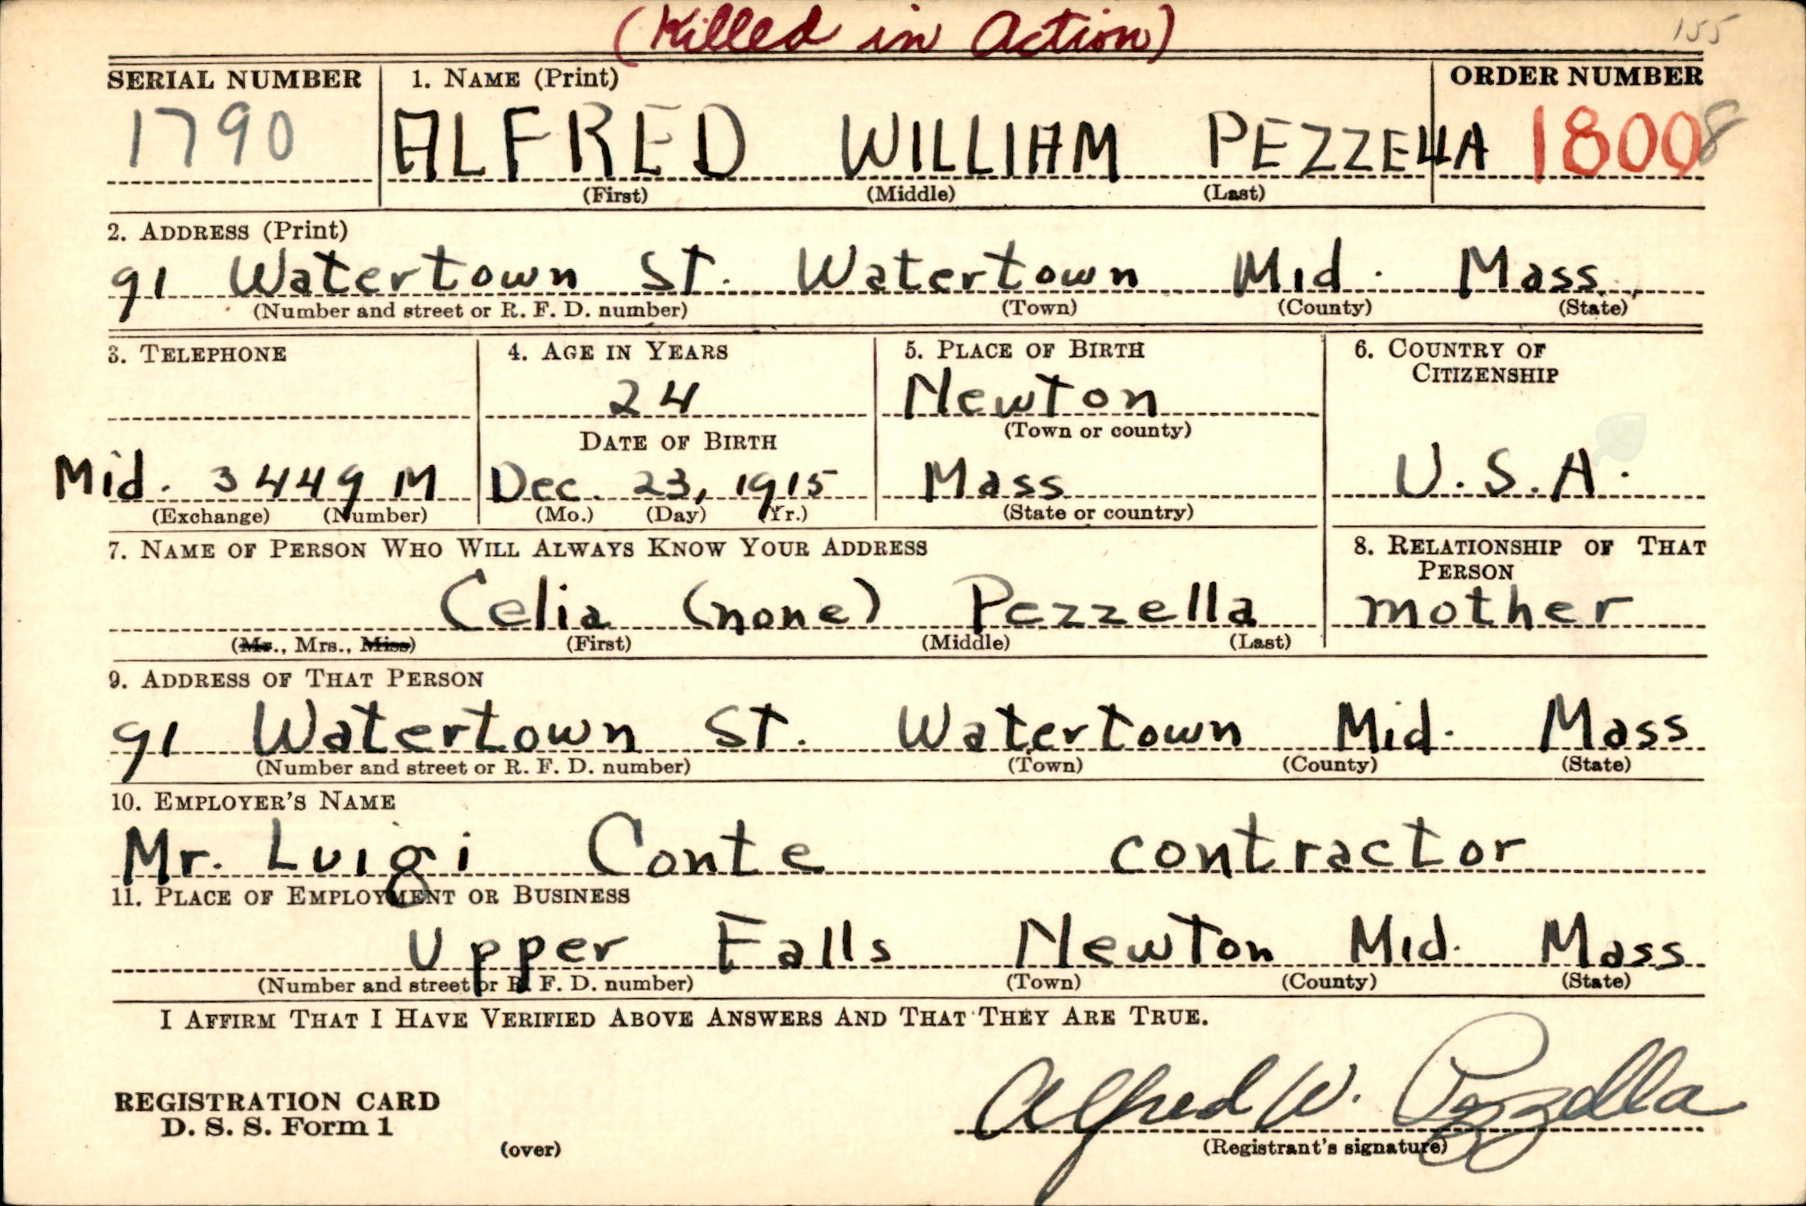 (Killed in Action)
155
SERIAL NUMBER 1. NAME (Print) ORDER NUMBER
1790 ALFRED WILLIAM PEZZELLA 18008
(First) (Middle) (Last)
2. ADDRESS (Print)
91 Watertown St. Watertown Mid. Mass.
(Number and street or R. F. D. number) (Town) (County) (State)
3. TELEPHONE 4. AGE IN YEARS 5. PLACE OF BIRTH 6. COUNTRY OF CITIZENSHIP
24 Newton
DATE OF BIRTH (Town or county)
Mid. 3449 M Dec. 23, 1915 Mass U.S.A.
(Exchange) (Number) (Mo.) (Day) (Yr.) (State or country)
7. NAME OF PERSON WHO WILL ALWAYS KNOW YOUR ADDRESS 8. RELATIONSHIP OF THAT PERSON
Celia (none) Pezzella mother
(Mr., Mrs., Miss) (First) (Middle) (Last)
9. ADDRESS OF THAT PERSON
91 Watertown St. Watertown Mid. Mass
(Number and street or R. F. D. number) (Town) (County) (State)
10. EMPLOYER'S NAME
Mr. Luigi Conte contractor
11. PLACE OF EMPLOYMENT OR BUSINESS
Upper Falls Newton Mid. Mass
(Number and street or R. F. D. number) (Town) (County) (State)
I AFFIRM THAT I HAVE VERIFIED ABOVE ANSWERS AND THAT THEY ARE TRUE.
REGISTRATION CARD
D. S. S. Form 1
Alfred W. Pezzella
(over) (Registrant's signature)